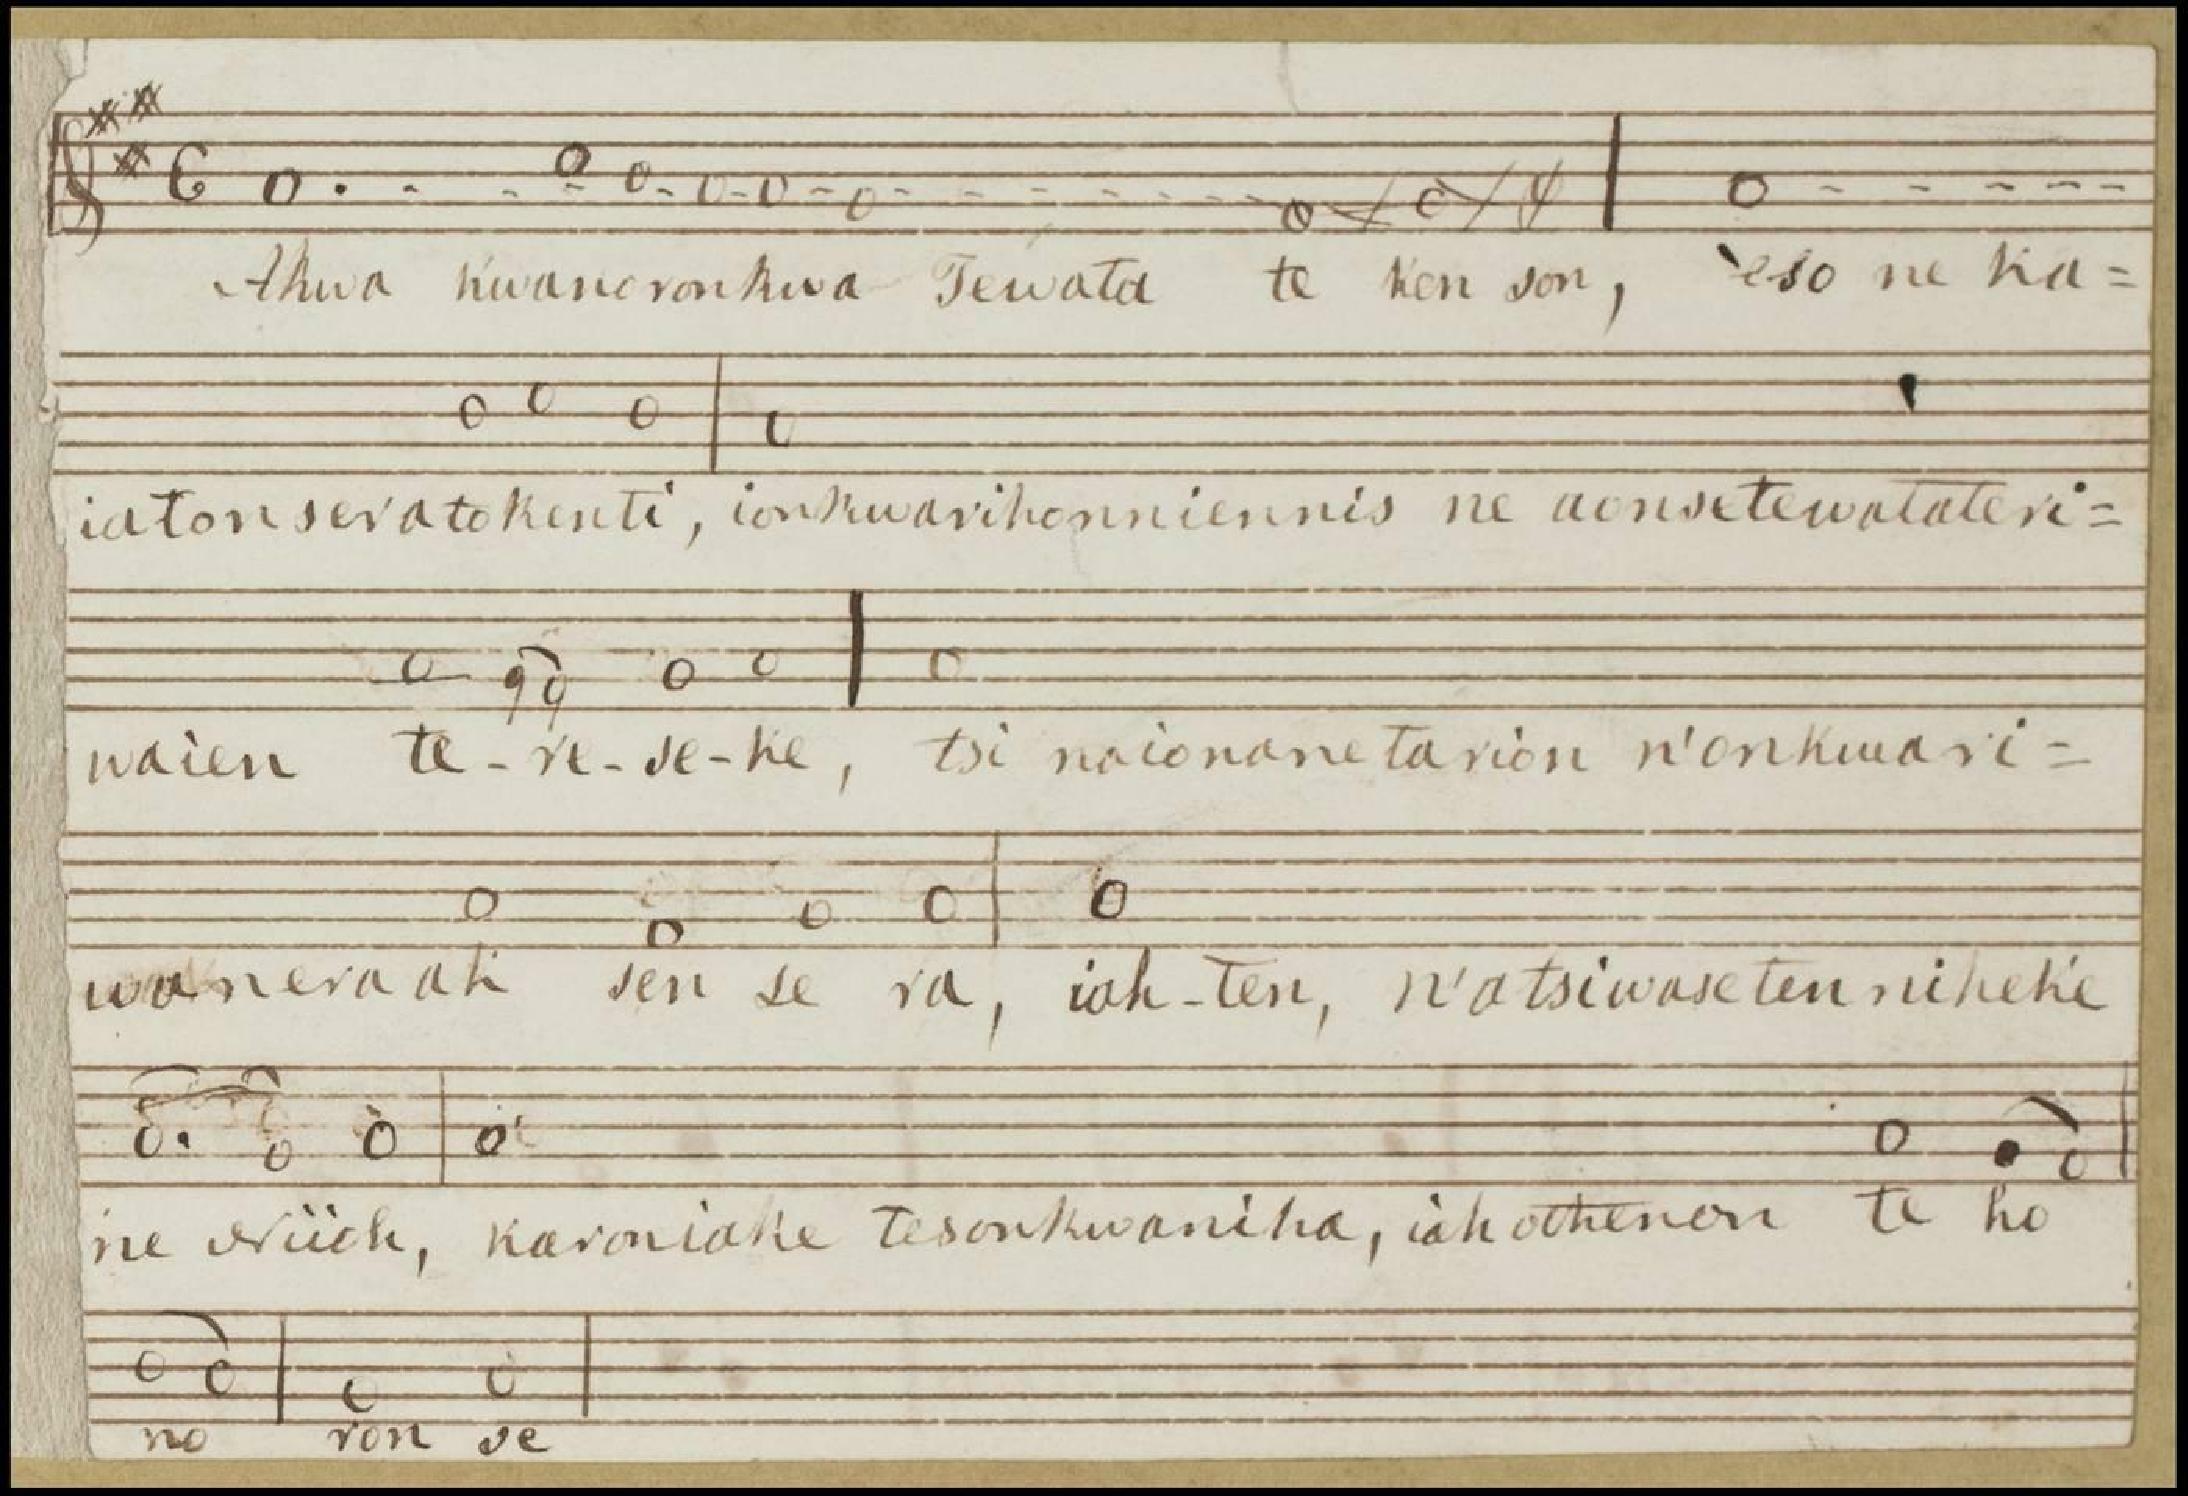 Akwa kwanoronkwa Tewata te ken son, eso ne ka=
iatonseratokenti, ionkwarihonniennis ne aonsetewatateri=
waien te-re-se-ke, tsi naionanetarion n'onkwari=
waneraak sen se ra, iah-ten, n'atsiwasetenniheke
ne Niioh, karoniake tesonkwaniha, iah othenon te ho
no ron se